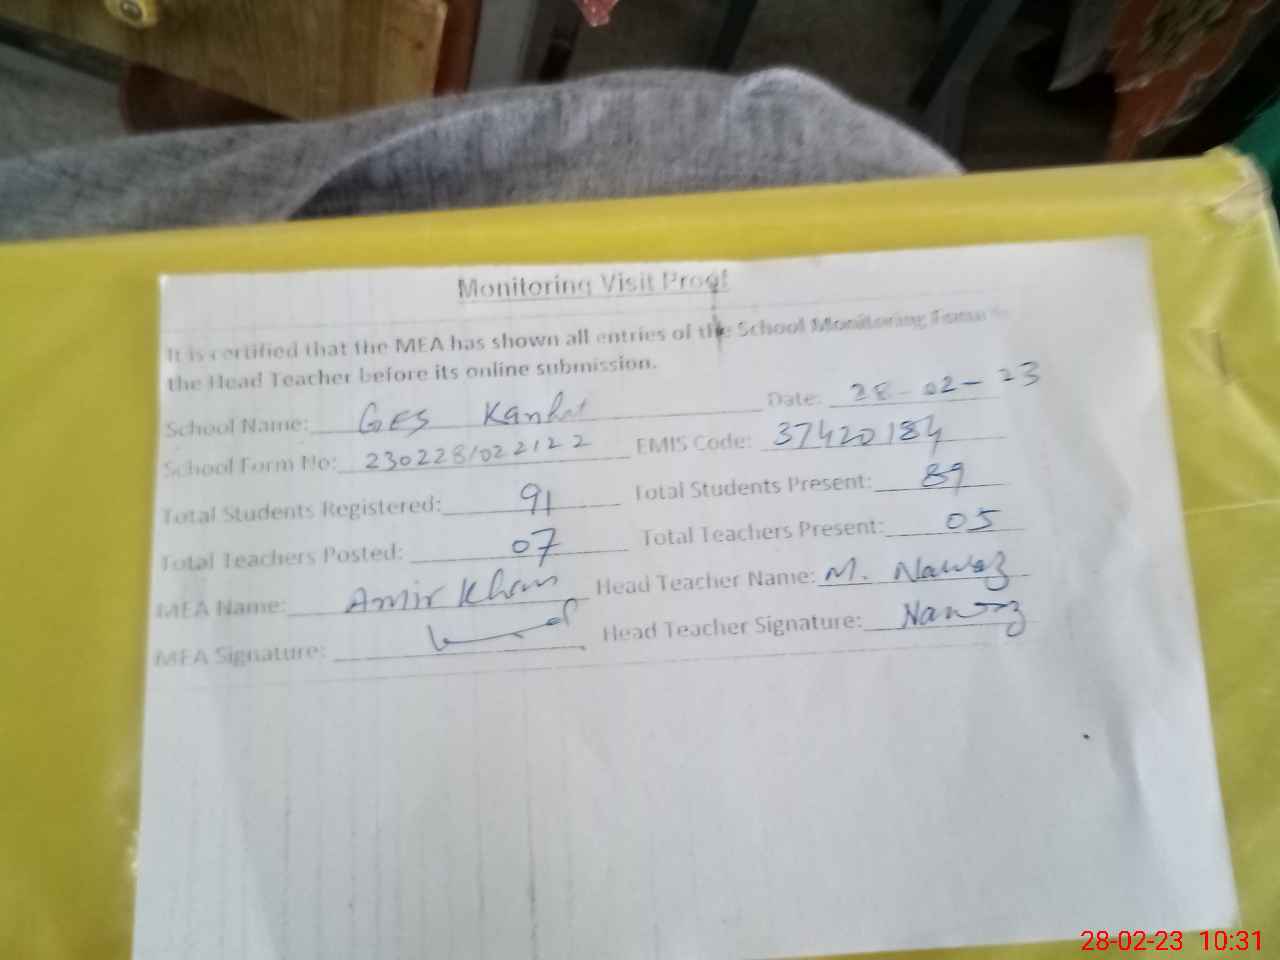 Monitoring Visit Proof
It is certified that the MEA has shown all entries of the School Monitoring Form to
the Head Teacher before its online submission.
School Name: GES Kanhat Date: 28-02-23
School Form No: 230228/022122 EMIS Code: 37420184
Total Students Registered: 91 Total Students Present: 89
Total Teachers Posted: 07 Total Teachers Present: 05
MEA Name: Amir Khan Head Teacher Name: M. Nawaz
MEA Signature: Head Teacher Signature: Nawaz
28-02-23 10:31